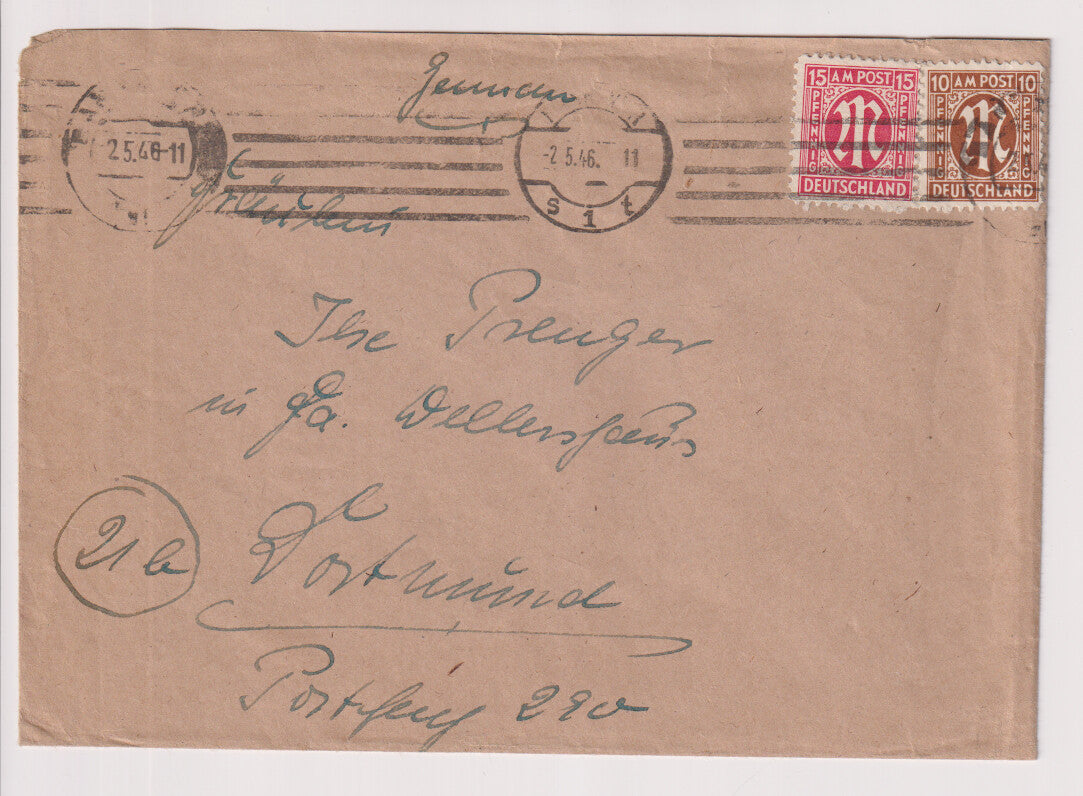 German
15 AM POST 15
PFENNIG PFENNIG
DEUTSCHLAND
10 AM POST 10
PFENNIG PFENNIG
DEUTSCHLAND
2.5.46-11
-2.5.46. 11
s 1 t
Fräulein
Ilse Prenger
in Fa. Wellershaus
21b
Dortmund
Postfach 290